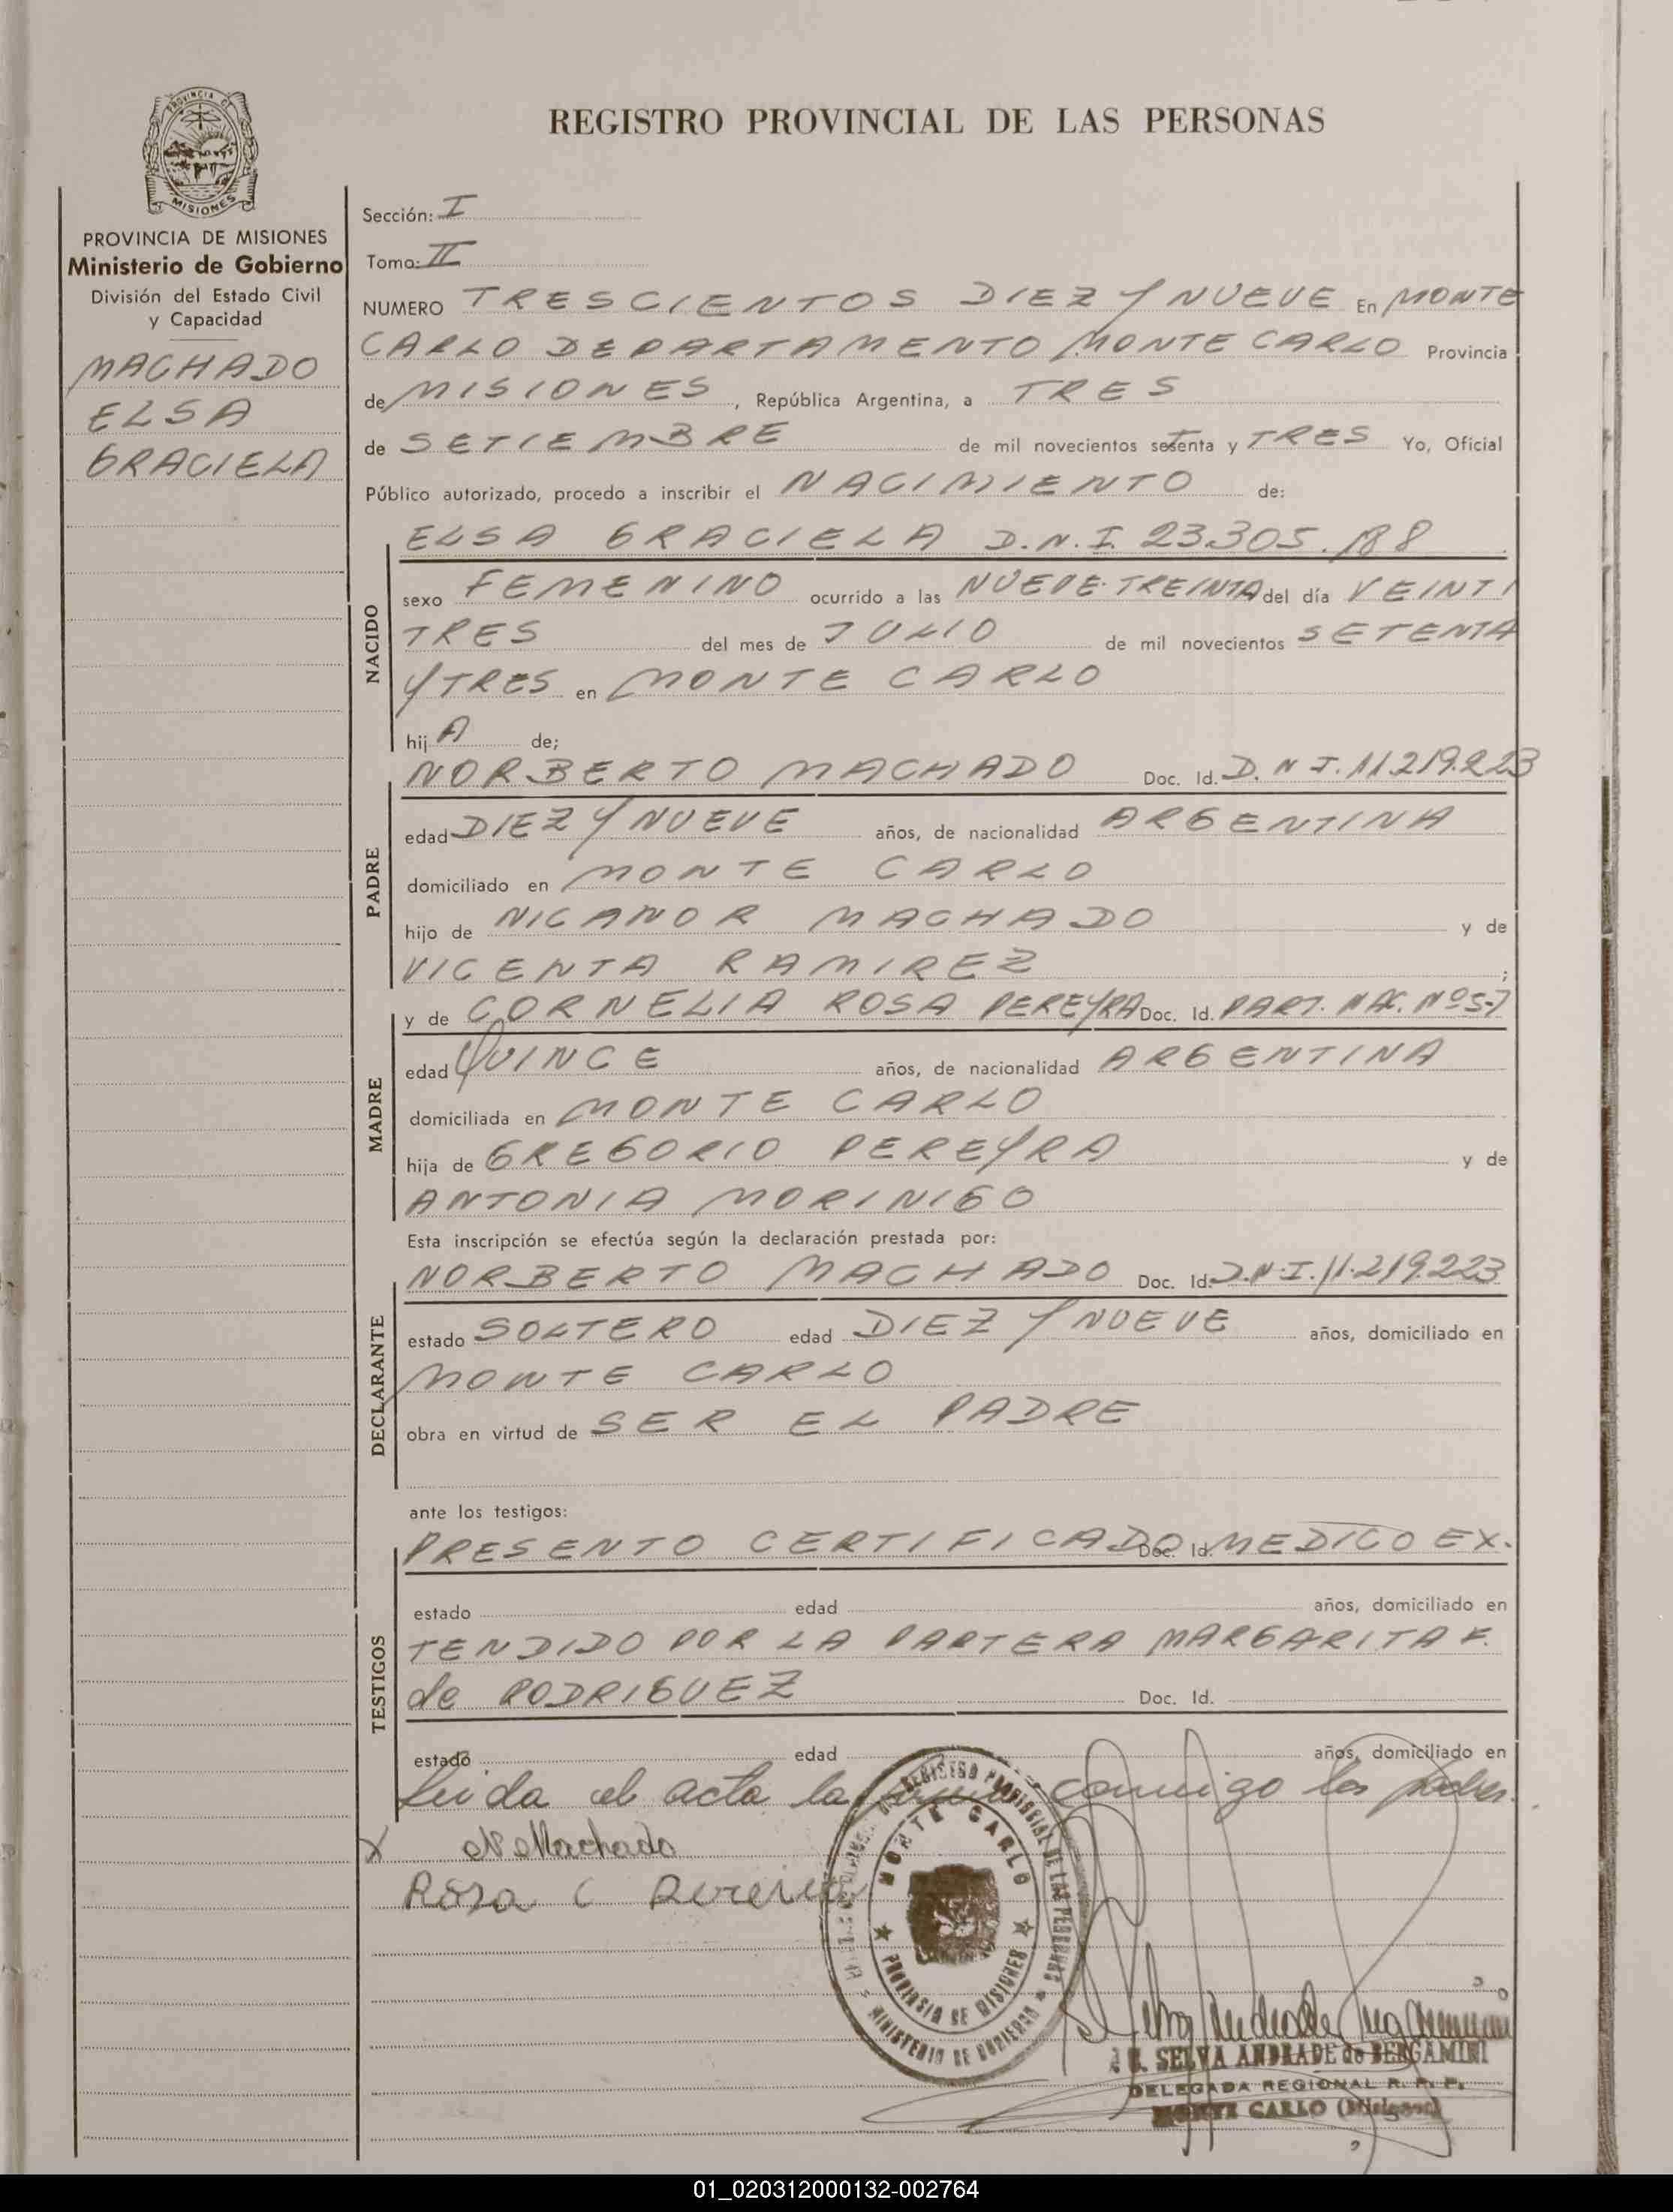 REGISTRO PROVINCIAL DE LAS PERSONAS
PROVINCIA DE MISIONES
Ministerio de Gobierno
División del Estado Civil
y Capacidad
MACHADO
ELSA
GRACIELA
Sección: I
Tomo: II
NUMERO TRESCIENTOS DIEZ Y NUEVE En MONTE
CARLO DEPARTAMENTO MONTE CARLO Provincia
de MISIONES, República Argentina, a TRES
de SETIEMBRE de mil novecientos setenta y TRES Yo, Oficial
Público autorizado, procedo a inscribir el NACIMIENTO de:
ELSA GRACIELA D.N.I. 23.305.188
NACIDO
sexo FEMENINO ocurrido a las NUEVE TREINTA del día VEINTI
TRES del mes de JULIO de mil novecientos SETENTA
Y TRES en MONTE CARLO
hij A de;
NORBERTO MACHADO Doc. Id. D.N.I. 11.219.223
PADRE
edad DIEZ Y NUEVE años, de nacionalidad ARGENTINA
domiciliado en MONTE CARLO
hijo de NICANOR MACHADO y de
VICENTA RAMIREZ ;
y de CORNELIA ROSA PEREYRA Doc. Id. PART. NAC. Nº 57
MADRE
edad QUINCE años, de nacionalidad ARGENTINA
domiciliada en MONTE CARLO
hija de GREGORIO PEREYRA y de
ANTONIA MORINIGO
Esta inscripción se efectúa según la declaración prestada por:
NORBERTO MACHADO Doc. Id. D.N.I. 11.219.223
DECLARANTE
estado SOLTERO edad DIEZ Y NUEVE años, domiciliado en
MONTE CARLO
obra en virtud de SER EL PADRE
ante los testigos:
PRESENTO CERTIFICADO Doc. Id. MEDICO EX.
TESTIGOS
estado edad años, domiciliado en
TENDIDO POR LA PARTERA MARGARITA F.
de RODRIGUEZ Doc. Id.
estado edad años, domiciliado en
Leida el acta la conmigo los padres.
X N Machado
Rosa C Pereira
REGISTRO PROVINCIAL DE LAS PERSONAS
MONTE CARLO
PROVINCIA DE MISIONES
MINISTERIO DE GOBIERNO
SELVA ANDRADE de BERGAMINI
DELEGADA REGIONAL R. P. P.
MONTE CARLO (Misiones)
01_020312000132-002764